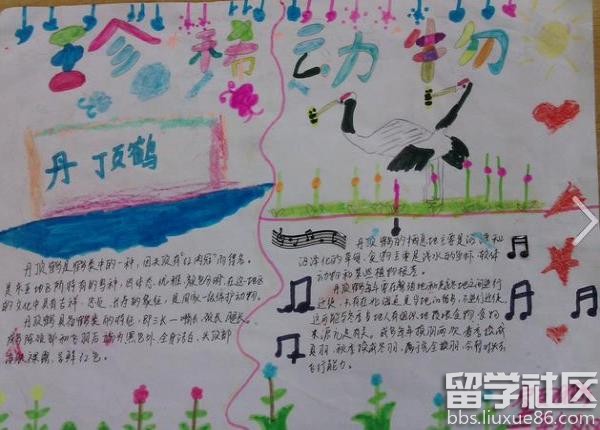 珍稀动物
丹顶鹤
丹顶鹤是鹤类中的一种，因头顶有“红肉冠”而得名。
是东亚地区所特有的鸟种，因体态优雅、颜色分明，在这一地区
的文化中具有吉祥、忠贞、长寿的象征，是国家一级保护动物。
丹顶鹤具备鹤类的特征，即三长—嘴长、颈长、腿长。
成鸟除颈部和飞羽后端为黑色外，全身洁白，头顶部
裸露，呈鲜红色。
丹顶鹤的栖息地主要是沼泽和
沼泽化的草甸，食物主要是浅水的鱼虾、软体
动物和某些植物根茎。
丹顶鹤每年要在繁殖地和越冬地之间进行
迁徙，只有在
成鸟每年换羽两次，春季换成
夏羽，秋季换成冬羽，属于完全换羽，会暂时失去
飞行能力。
留学社区
bbs.liuxue86.com